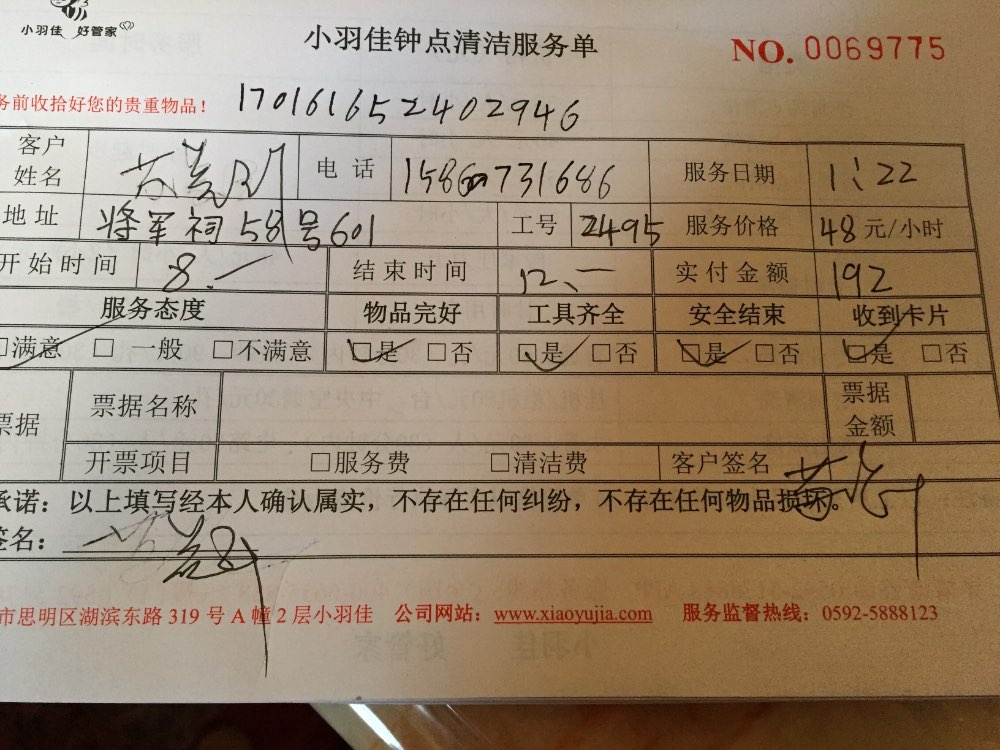 小羽佳 好管家
小羽佳钟点清洁服务单
NO. 0069775
务前收拾好您的贵重物品！ 170161652402946
客户姓名 电话 731686 服务日期 1.22
地址 将军祠58号601 工号 2495 服务价格 48元/小时
开始时间 8.一 结束时间 12.一 实付金额 192
服务态度 物品完好 工具齐全 安全结束 收到卡片
□满意 □一般 □不满意 □是 □否 □是 □否 □是 □否 □是 □否
票据 票据名称 票据金额
开票项目 □服务费 □清洁费 客户签名
承诺：以上填写经本人确认属实，不存在任何纠纷，不存在任何物品损坏。
签名：
市思明区湖滨东路 319 号 A 幢 2 层小羽佳 公司网站：www.xiaoyujia.com 服务监督热线：0592-5888123